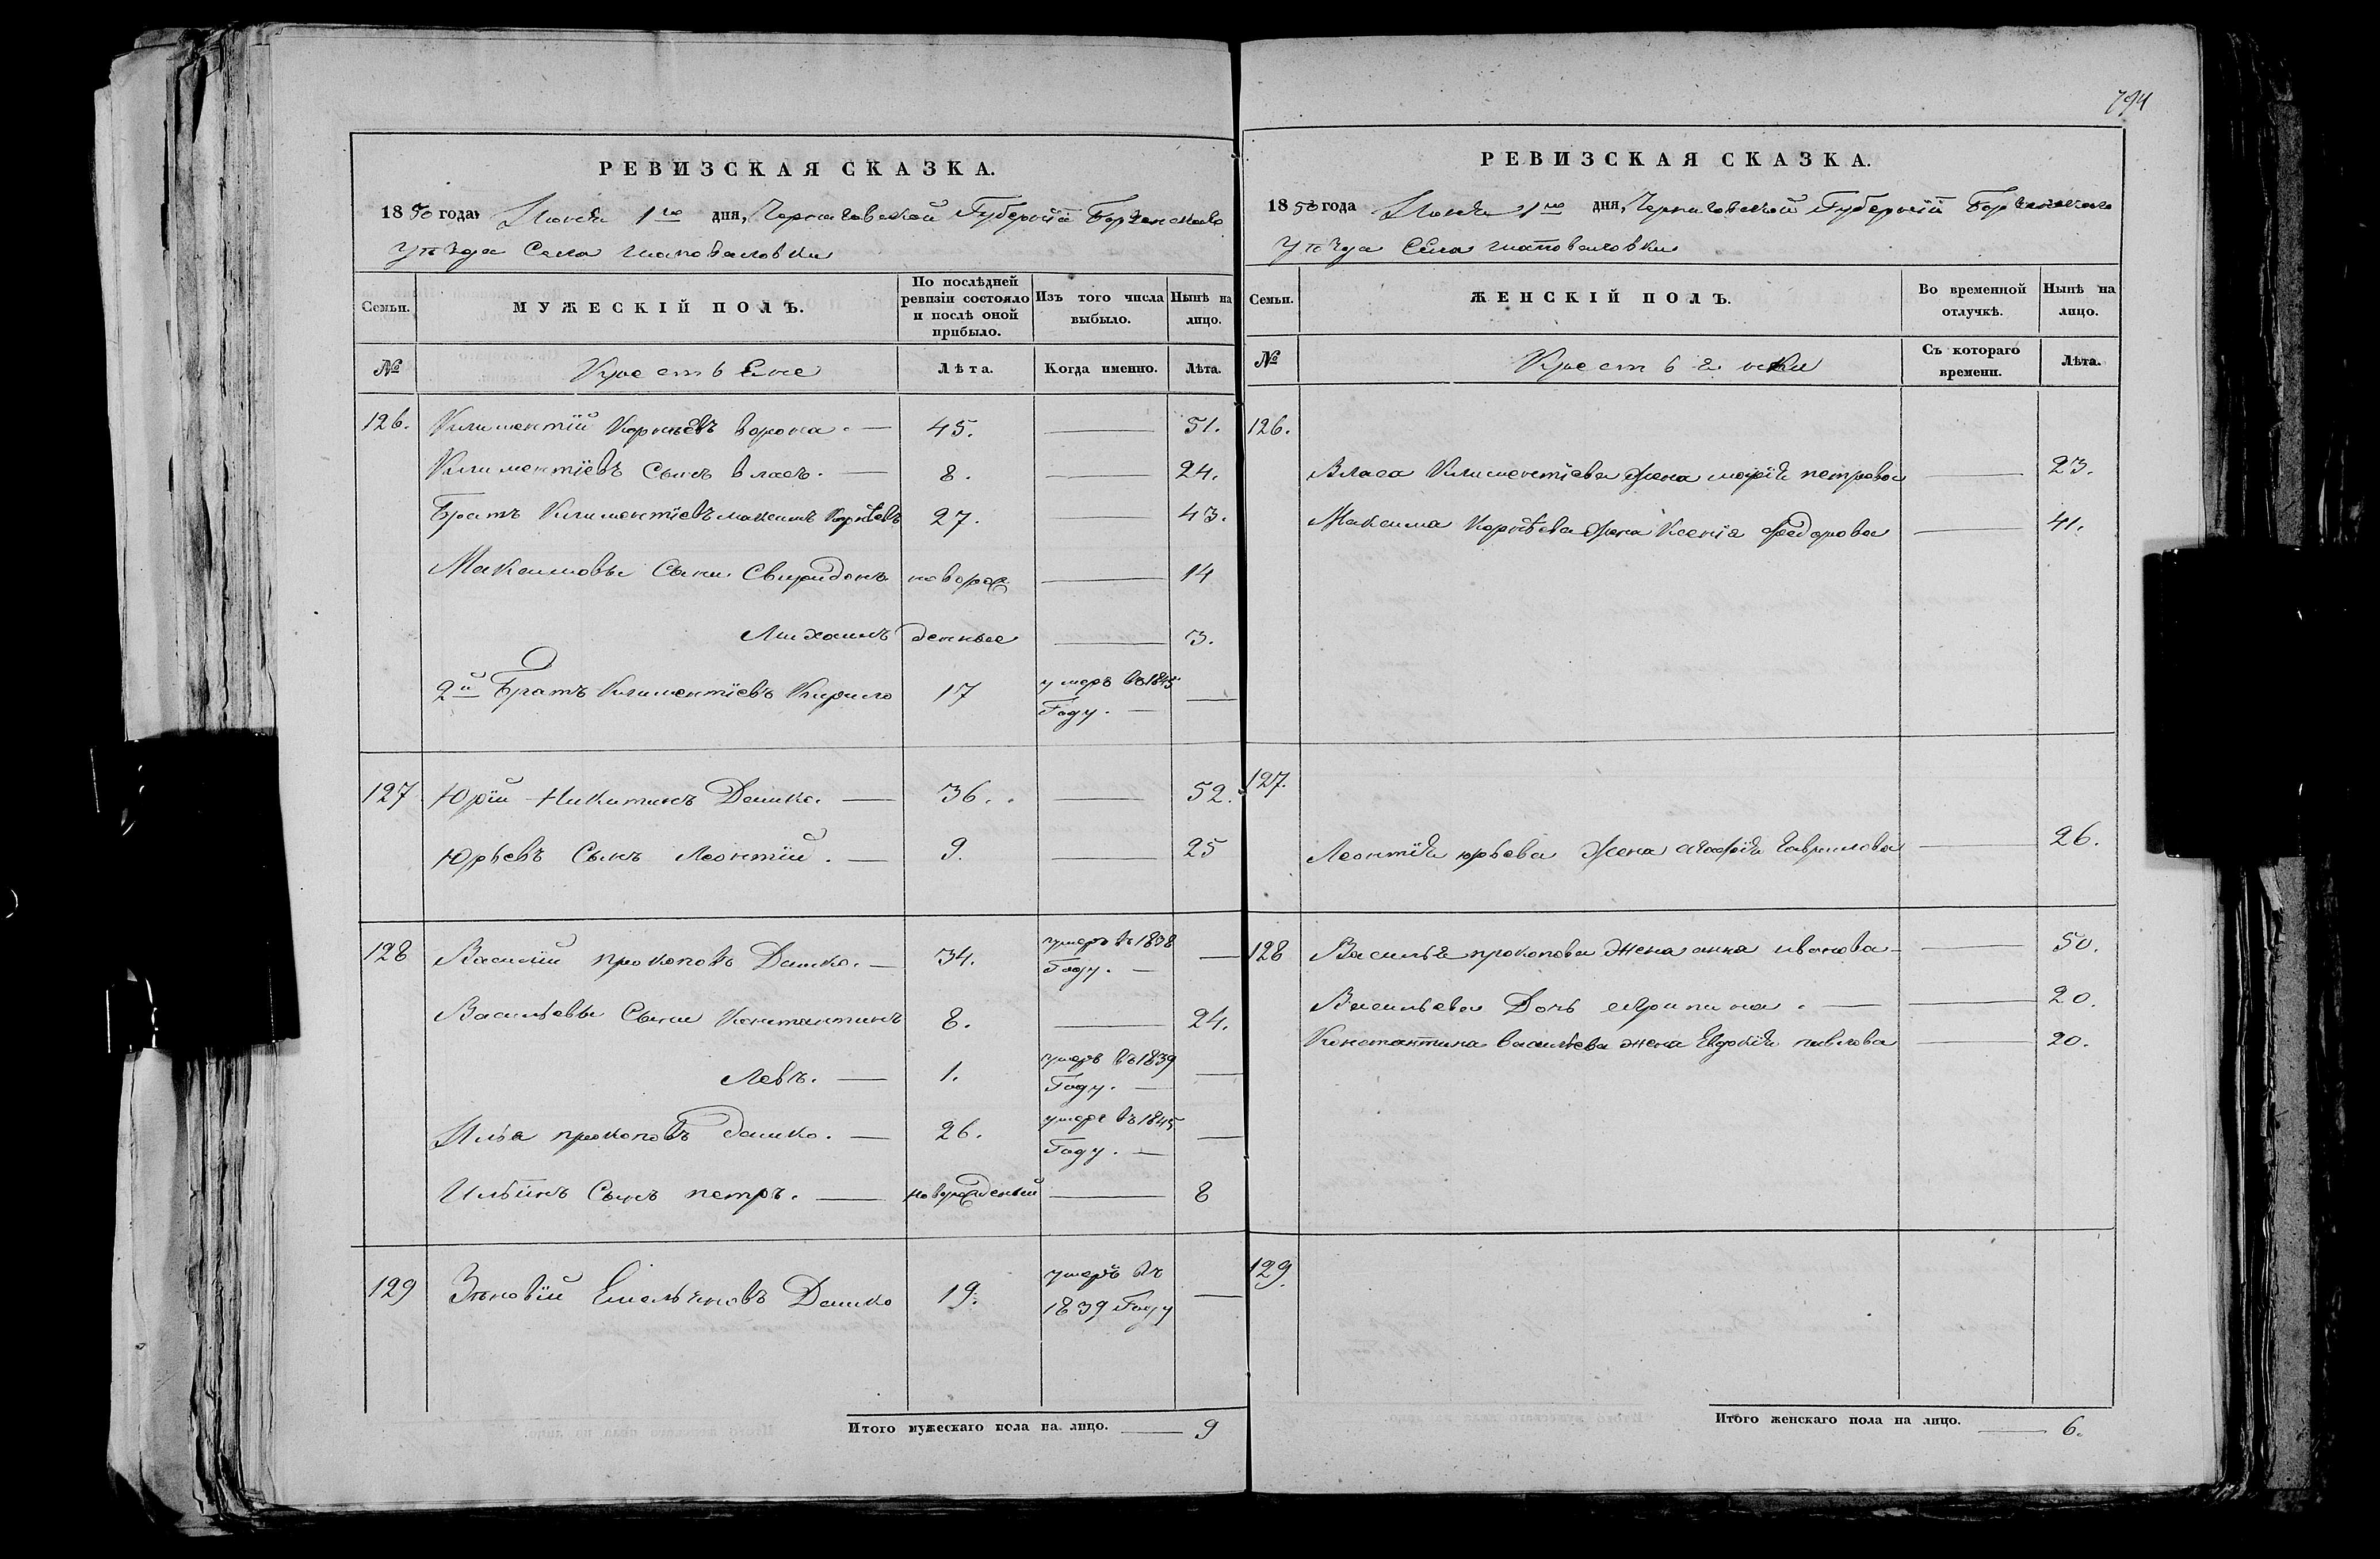 794
РЕВИЗСКАЯ СКАЗКА.
1850 года Июня 1го дня, Черниговской Губернiи Борзенскаго
уѣзда Села Шаповаловки
Семьи. МУЖЕСКІЙ ПОЛЪ. По послѣдней ревизіи состояло и послѣ оной прибыло. Изъ того числа выбыло. Нынѣ на лицо.
№ Крестьяне Лѣта. Когда именно. Лѣта.
126. Климентій Корнѣевъ ворона. — 45. — 51.
Климентіевъ Сынъ власъ. — 8. — 24.
Братъ Климентіевъ максимъ Корнѣевъ 27. — 43.
Максимовы Сыны Свиридонъ новорож — 14
Михаилъ денные — 3.
2й Братъ Климентіевъ Кирило 17 умеръ въ 1845 —
Году. —
127 Юрій Никитинъ Дашко. — 36. — 52.
Юрьевъ Сынъ Леонтій. — 9. — 25
128 Василій прокоповъ Дашко. — 34. умеръ въ 1838 —
Году. —
Васильевы Сыны Константинъ 8. — 24.
Левъ. — 1. умеръ въ 1839 —
Году. —
Илья прокоповъ дашко. — 26. умеръ въ 1845 —
Году. —
Ильинъ Сынъ петръ. — новорожденый — 8
129 Зѣновій Емельяновъ Дашко 19. умеръ въ —
1839 Году
Итого мужескаго пола на лицо. — 9
РЕВИЗСКАЯ СКАЗКА.
1850 года Июня 1го дня, Черниговской Губерніи Борзенскаго
уѣзда Села шаповаловки
Семьи. ЖЕНСКІЙ ПОЛЪ. Во временной отлучкѣ. Нынѣ на лицо.
№ Крестьянки Съ котораго времени. Лѣта.
126.
Власа Климентіева жена марія петрова — 23.
Максима Корнѣева жена Ксенія Федорова — 41.
127.
Леонтія юрьева жена агафія Гаврилова — 26.
128 Василья прокопова жена анна иванова — 50.
Васильева Дочь агрипина. — 20.
Константина васильева жена Евдокія павлова — 20.
129.
Итого женскаго пола на лицо. — 6.